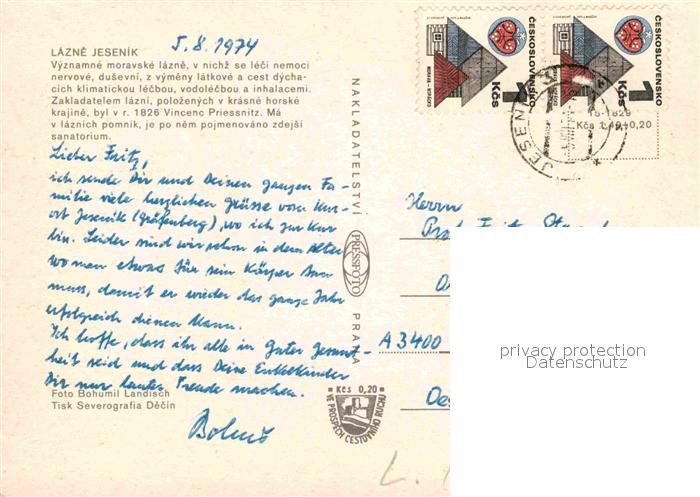 LÁZNĚ JESENÍK
5.8.1974
Významné moravské lázně, v nichž se léčí nemoci
nervové, duševní, z výměny látkové a cest dýcha-
cích klimatickou léčbou, vodoléčbou a inhalacemi.
Zakladatelem lázní, položených v krásné horské
krajině, byl v r. 1826 Vincenc Priessnitz. Má
v lázních pomník, je po něm pojmenováno zdejší
sanatorium.
Lieber Fritz,
ich sende Dir und Deinen ganzen Fa-
milie viele herzlichen Grüsse vom Kur-
ort Jeseník (Gräfenberg), wo ich zur Kur
bin. Leider sind wir schon in dem Alter
wo man etwas für sein Körper tun
muss, damit er wieder das ganze Jahr
erfolgreich dienen kann.
Ich hoffe, dass ihr alle in guter Gesund-
heit seid und dass Deine Enkelkinder
Dir nur lauter Freude machen.
Foto Bohumil Landisch
Tisk Severografia Děčín
NAKLADATELSTVÍ
PRESSFOTO
PRAHA
Kčs 0,20
VE PROSPĚCH CESTOVNÍHO RUCHU
ČESKOSLOVENSKO
1 Kčs
ČESKOSLOVENSKO
1 Kčs
JESENÍ
Kčs 1,40+0,20
Herrn
Fritz
A 3400
privacy protection
Datenschutz